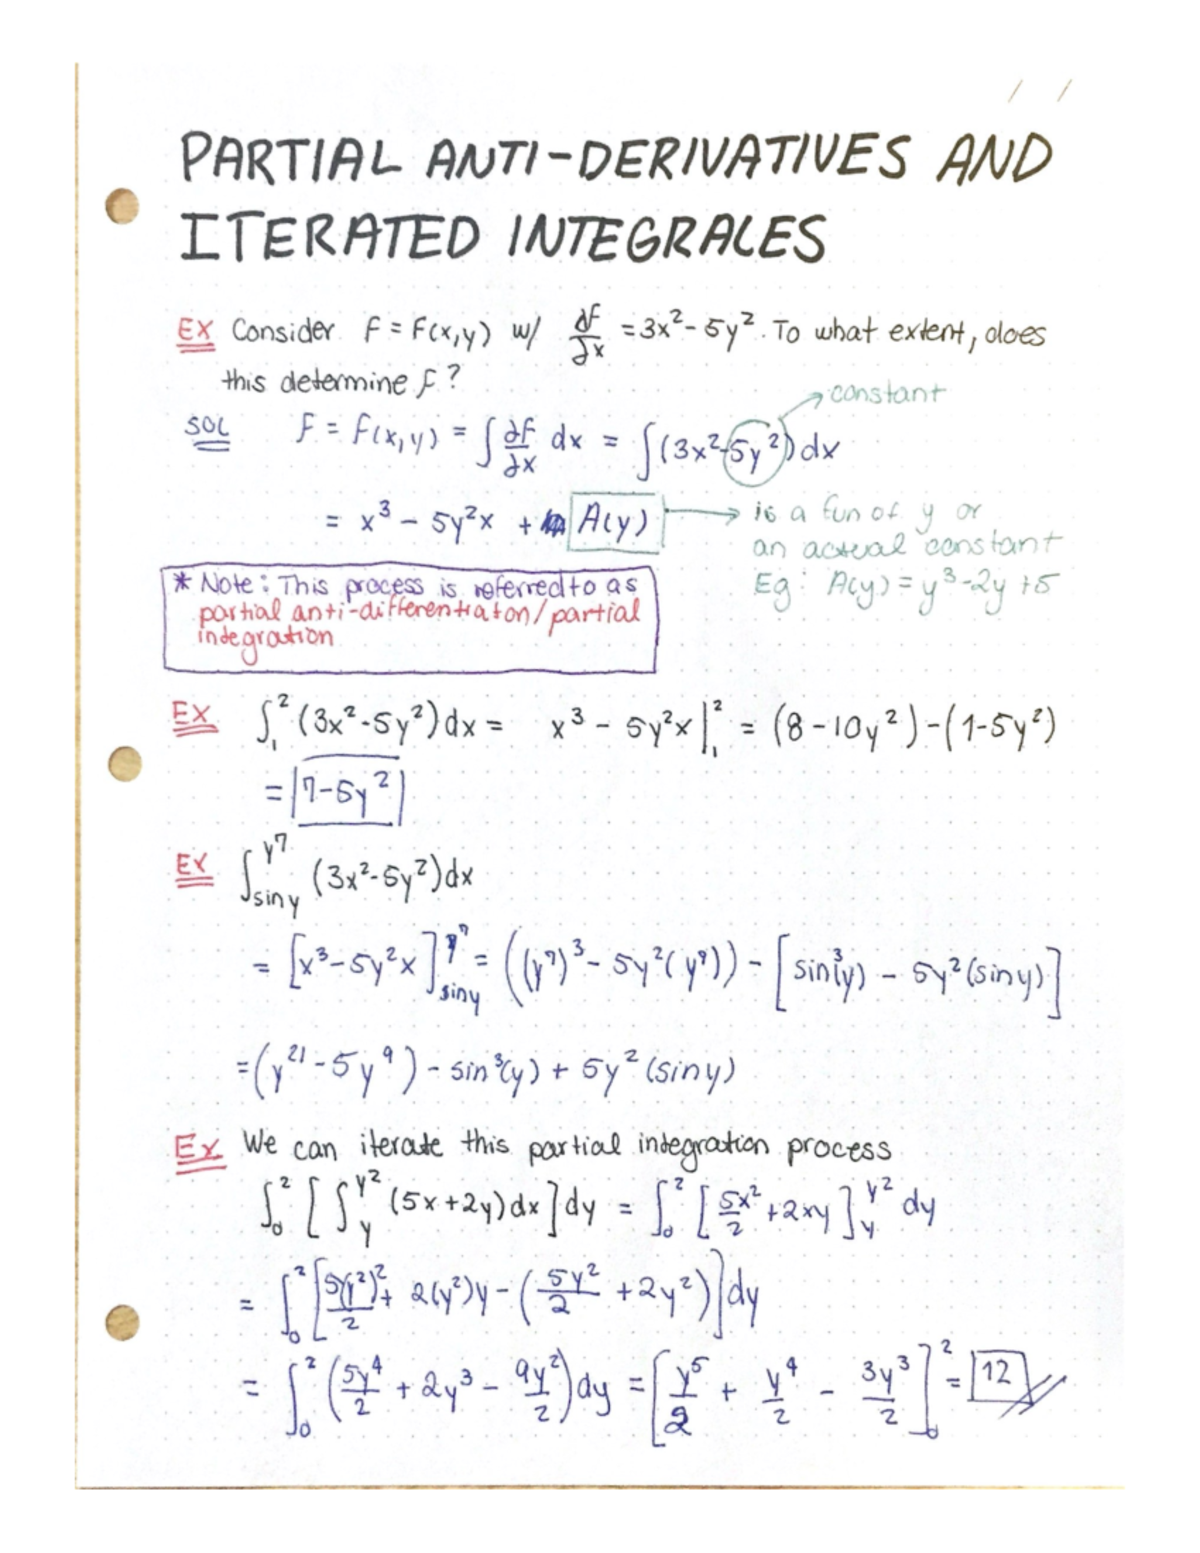 / /
PARTIAL ANTI-DERIVATIVES AND
ITERATED INTEGRALES
EX Consider F = F(x,y) w/ ∂F/∂x = 3x² - 5y². To what extent, does
this determine f?
constant
SOL F = f(x,y) = ∫ ∂F/∂x dx = ∫(3x²-5y²)dx
= x³ - 5y²x + A(y) → is a fun of y or
an actual constant
Eg: A(y) = y³-2y+5
* Note: This process is referred to as
partial anti-differentiaton/partial
integration
EX ∫₁² (3x²-5y²)dx = x³ - 5y²x |₁² = (8-10y²)-(1-5y²)
= 7-5y²
EX ∫_{siny}^{y⁷} (3x²-5y²)dx
= [x³-5y²x]_{siny}^{y⁷} = ((y⁷)³ - 5y²(y⁷)) - [sin³(y) - 5y²(siny)]
=(y²¹-5y⁹) - sin³(y) + 5y²(siny)
Ex We can iterate this partial integration process
∫₀² [∫_y^{y²} (5x+2y)dx]dy = ∫₀² [5x²/2 + 2xy]_y^{y²} dy
= ∫₀² [5(y²)²/2 + 2(y²)y - (5y²/2 + 2y²)]dy
= ∫₀² (5y⁴/2 + 2y³ - 9y²/2)dy = [y⁵/2 + y⁴/2 - 3y³/2]₀² = 12